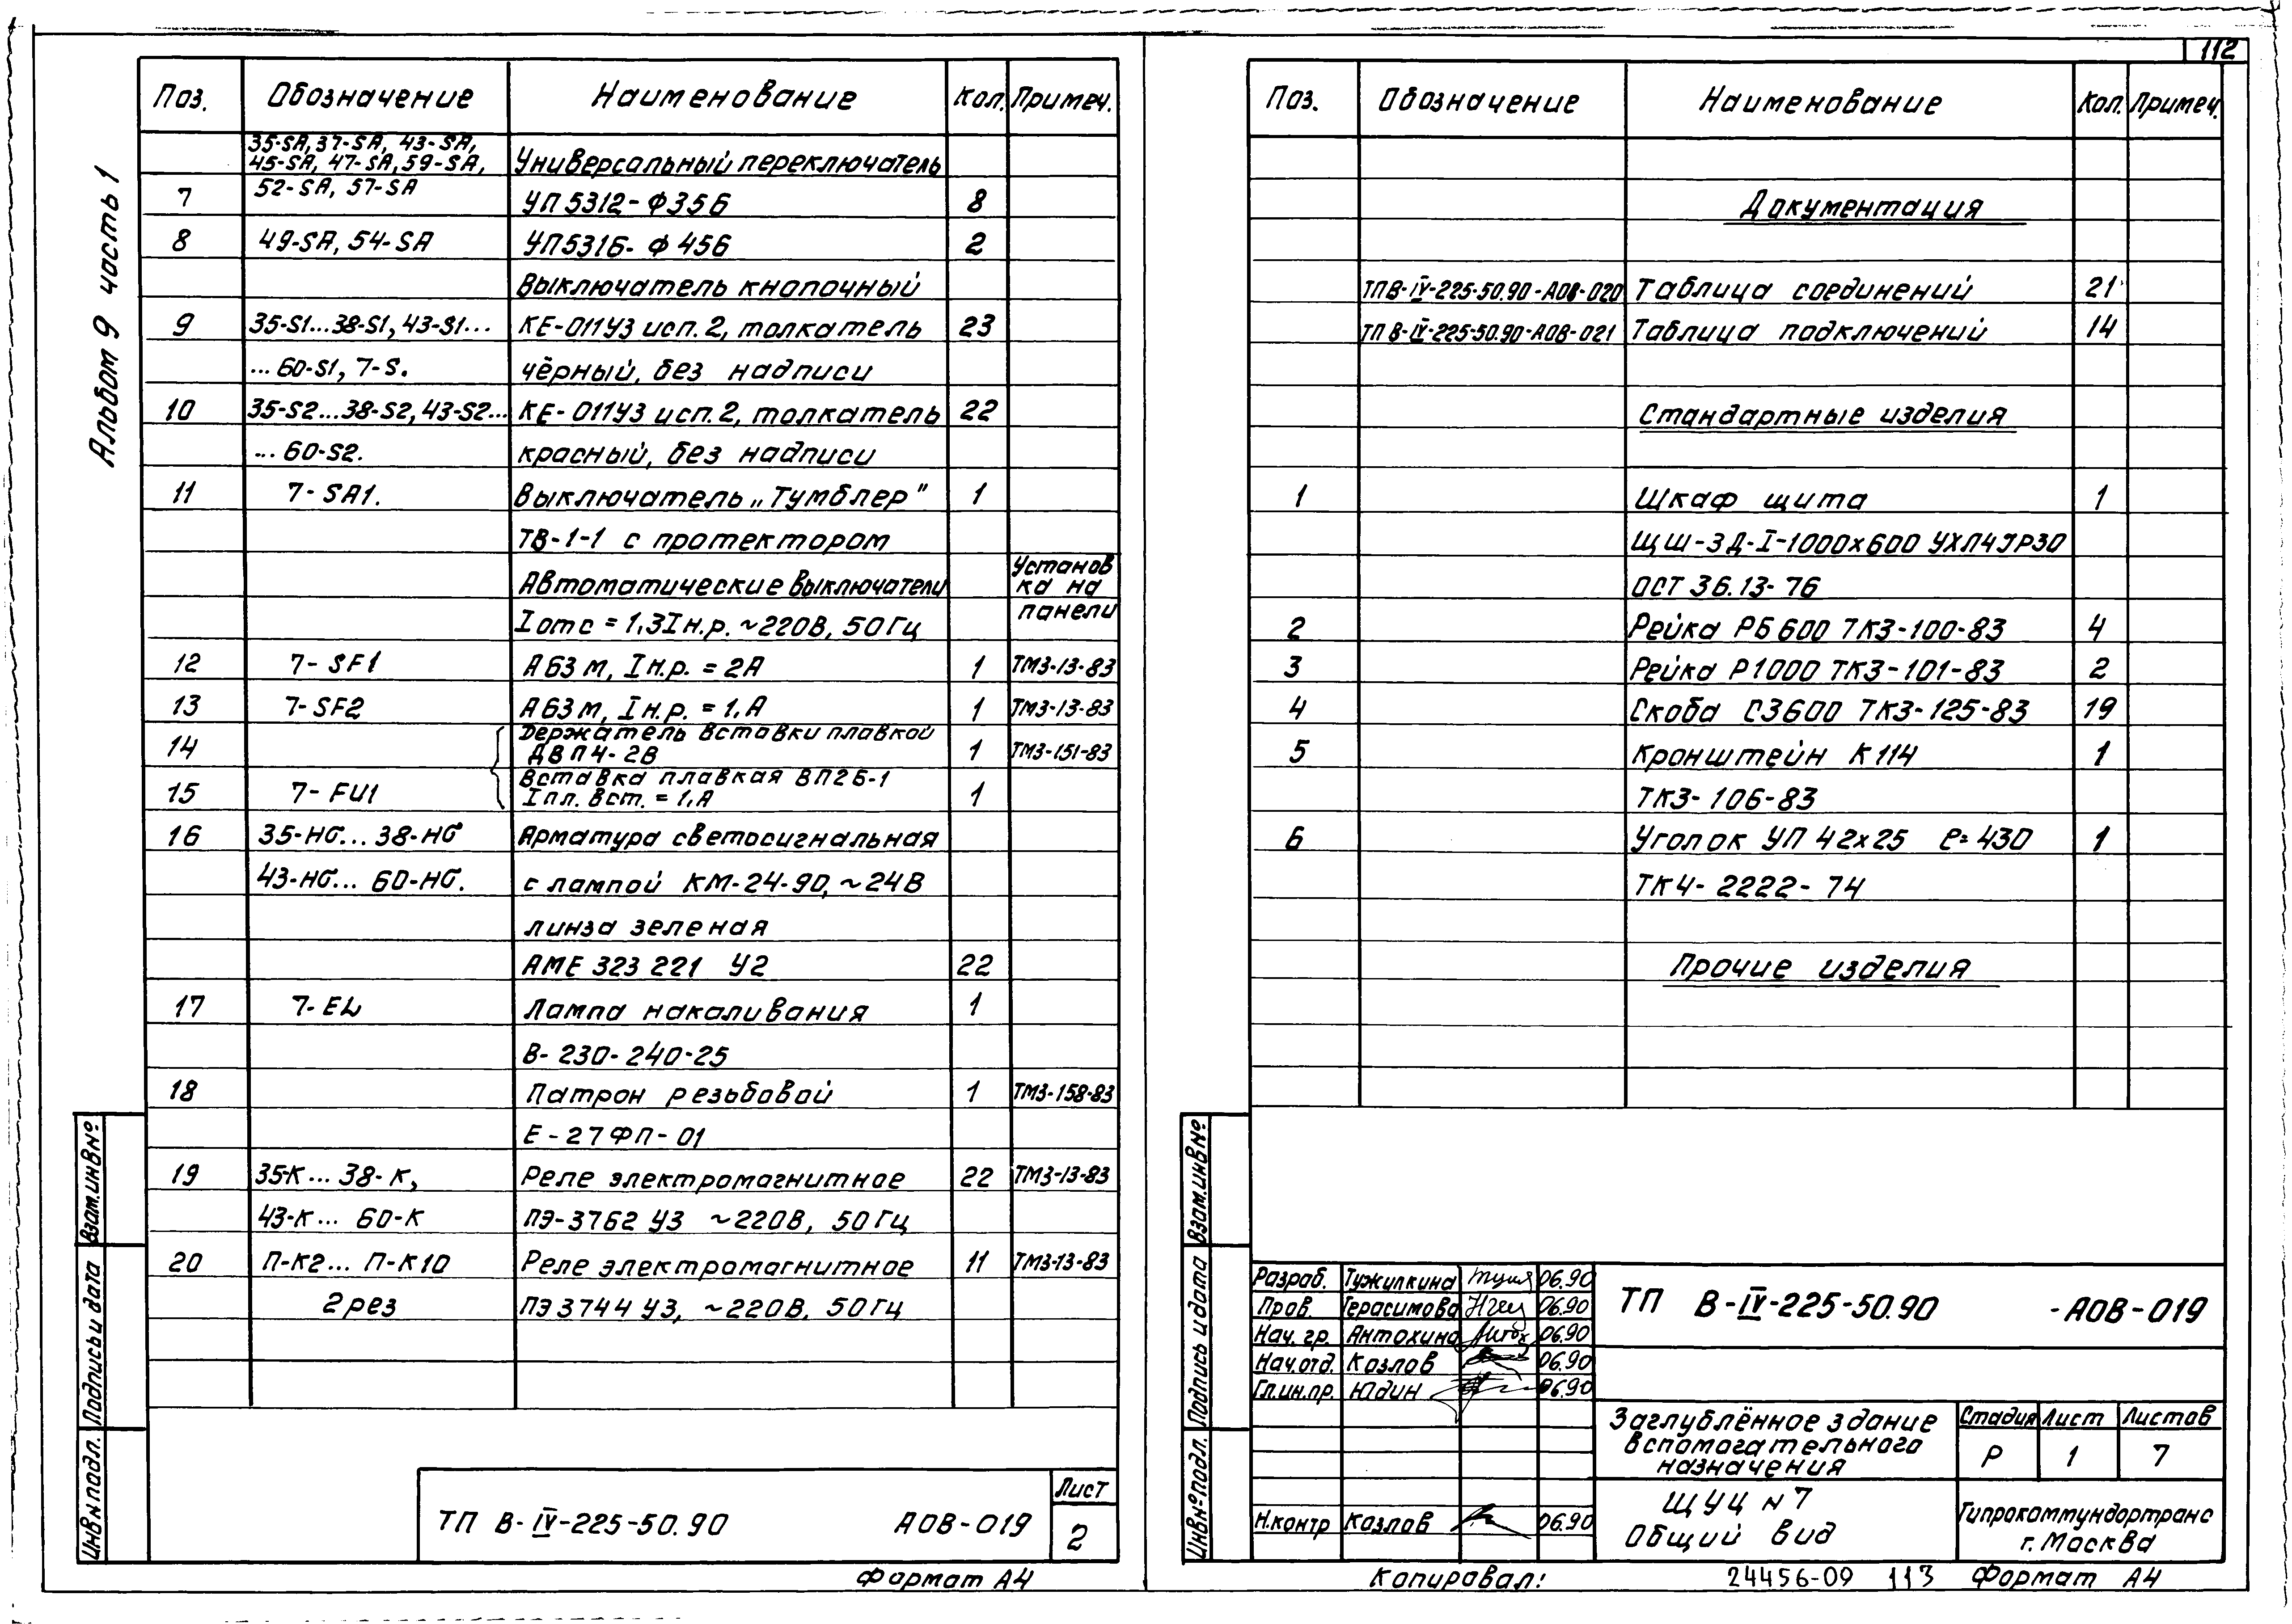 112
Альбом 9 часть 1
Поз. Обозначение Наименование Кол. Примеч.
35-SA, 37-SA, 43-SA,
45-SA, 47-SA, 59-SA, Универсальный переключатель
7 52-SA, 57-SA УП 5312-Ф356 8
8 49-SA, 54-SA УП5316-Ф 456 2
Выключатель кнопочный
9 35-S1...38-S1, 43-S1... КЕ-011У3 исп. 2, толкатель 23
...60-S1, 7-S. чёрный, без надписи
10 35-S2...38-S2, 43-S2... КЕ-011У3 исп. 2, толкатель 22
...60-S2. красный, без надписи
11 7-SA1. Выключатель „Тумблер" 1
ТВ-1-1 с протектором
Автоматические выключатели Установ
ка на
Iотс = 1,3Iн.р. ~220В, 50Гц панели
12 7-SF1 А63м, Iн.р. = 2А 1 ТМ3-13-83
13 7-SF2 А63м, Iн.р. = 1,А 1 ТМ3-13-83
Держатель вставки плавкой
14 ДВП4-2В 1 ТМ3-151-83
Вставка плавкая ВП2Б-1
15 7-FU1 Iпл. вст. = 1,А 1
16 35-HG...38-HG Арматура светосигнальная
43-HG...60-HG. с лампой КМ-24-90, ~24В
линза зеленая
АМЕ 323 221 У2 22
17 7-EL Лампа накаливания 1
В-230-240-25
18 Патрон резьбовой 1 ТМ3-158-83
Е-27ФП-01
19 35-К...38-К, Реле электромагнитное 22 ТМ3-13-83
43-К...60-К ПЭ-3762 У3 ~220В, 50Гц
20 П-К2...П-К10 Реле электромагнитное 11 ТМ3-13-83
2рез ПЭ3744 У3, ~220В, 50Гц
Взам.инв№
Подпись и дата
Инв№подл.
ТП В-IV-225-50.90 АОВ-019
Лист
2
Формат А4
Поз. Обозначение Наименование Кол. Примеч.
Документация
ТПВ-IV-225-50.90-АОВ-020 Таблица соединений 21
ТП В-IV-225-50.90-АОВ-021 Таблица подключений 14
Стандартные изделия
1 Шкаф щита 1
ЩШ-ЗД-I-1000х600 УХЛ4 IP30
ОСТ 36.13-76
2 Рейка РБ600 ТК3-100-83 4
3 Рейка Р1000 ТК3-101-83 2
4 Скоба С3600 ТК3-125-83 19
5 Кронштейн К114 1
ТК3-106-83
6 Уголок УП 42х25 ℓ=430 1
ТК4-2222-74
Прочие изделия
Взам.инв№
Подпись и дата
Инв№подл.
Разраб. Тужилкина 06.90
Пров. Герасимова 06.90
Нач. гр. Антохина 06.90
Нач.отд. Козлов 06.90
Гл.ин.пр. Юдин 06.90
Н.контр Козлов 06.90
ТП В-IV-225-50.90 -АОВ-019
Заглублённое здание
вспомогательного
назначения
Стадия Лист Листов
Р 1 7
ЩУЦ N7
Общий вид
Гипрокоммундортранс
г. Москва
Копировал: 24456-09 113 Формат А4